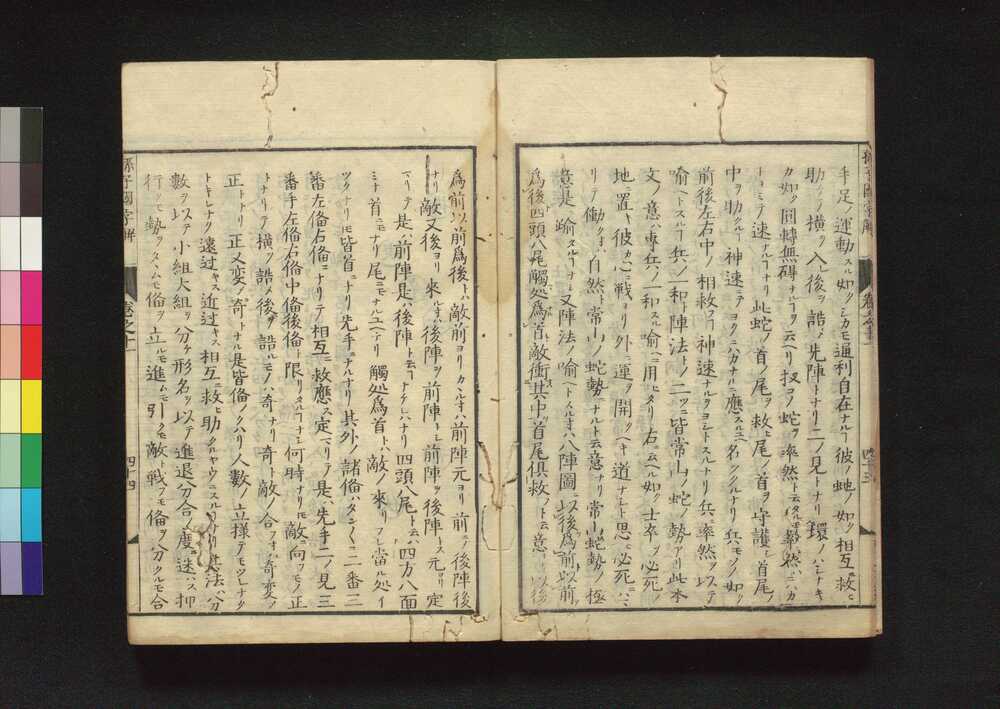 手足ノ運動スル如クシカモ通利自在ナルヿ彼ノ虵ノ如ク相互ニ救ヒ
助ケノ横ヲ入レ後ヲ詰メ先陣トナリ二ノ見トナリ環ノハシナキ
カ如ク圓轉無碍ナルヿヲ云ヘリ扨コノ蛇ヲ率然ト云タルモ率然ハニハカ
トヨミテ速ナルヿナリ此蛇ノ首ノ尾ヲ救ヒ尾ノ首ヲ守護シ首尾ノ
中ヲ助クルヿ神速ニシテヨクニハカナルニ應スルユヘ名クルナリ兵モソノ如ク
前後左右中ノ相救フヿ神速ナルヲヨシトスルナリ兵率然ヲ以テ
喻トスルヿ兵ノ和ト陣法ノ二ツニ皆常山ノ蛇ノ勢アリ此本
文ノ意ハ専兵ノ一和スル喻ニ用ヒタリ右ニ云ヘル如ク士卒ヲ必死ノ
地ニ置キ彼カ心ニ戦ヨリ外ニ運ヲ開クヘキ道ナシト思ヒ必死ニハマ
リテ働クトキハ自然ト常山ノ蛇勢ニナルト云意ナリ常山蛇勢ノ
意ニ喻スルナリ又陣法ノ喻トスルトキハ八陣圖ニ以後為前以前
為後四頭八尾觸処為首敵衝其中首尾俱救フト云意ニテ以後
為前以前為後トハ敵前ヨリカヽルトキハ前陣元ヨリ前ニ後陣後
ナリ敵又後ヨリ來ルトキハ後陣ヲ前陣トシ前陣ヲ後陣トス元ヨリ定
マリテ是ハ前陣是ハ後陣ト云コトナケレハナリ四頭八尾トハ四方八面
ミナ首ニモナリ尾ニモナルユヘナリ觸処為首トハ敵ノ來リフレ當ル処イ
ツクナリトモ皆首ニナリ先手ニナルナリ其外ノ諸備ハタンタンニ二番三
番左備右備ニナリテ相互ニ救應ス定マリテ是ハ先手二ノ見三
番手左備右備中備後備ト限リタルヿナシ何時ナリトモ敵ニ向フモノ正
トナリテ横ヲ詰メ後ヲ詰ルモノハ奇ナリ奇ト敵ノ合フトキハ奇変シ
正トナリ正又変シテ奇トナル是皆備ノクハリ人數ノ立様テモツレナク
トキレナク遠過キス近過キス相互ニ救ヒ助クルヤウニスルヿナリ其法ハ分
數ヲ以テ小組大組ヲ分チ形名ヲ以テ進退分合ノ度ニ迷ハス扨
行クモ勢ヲタヽムモ備ヲ立ルモ進ムモ引クモ敵ト戦フモ備ヲ分クルモ合
孫子國字解
卷之十一
四十四